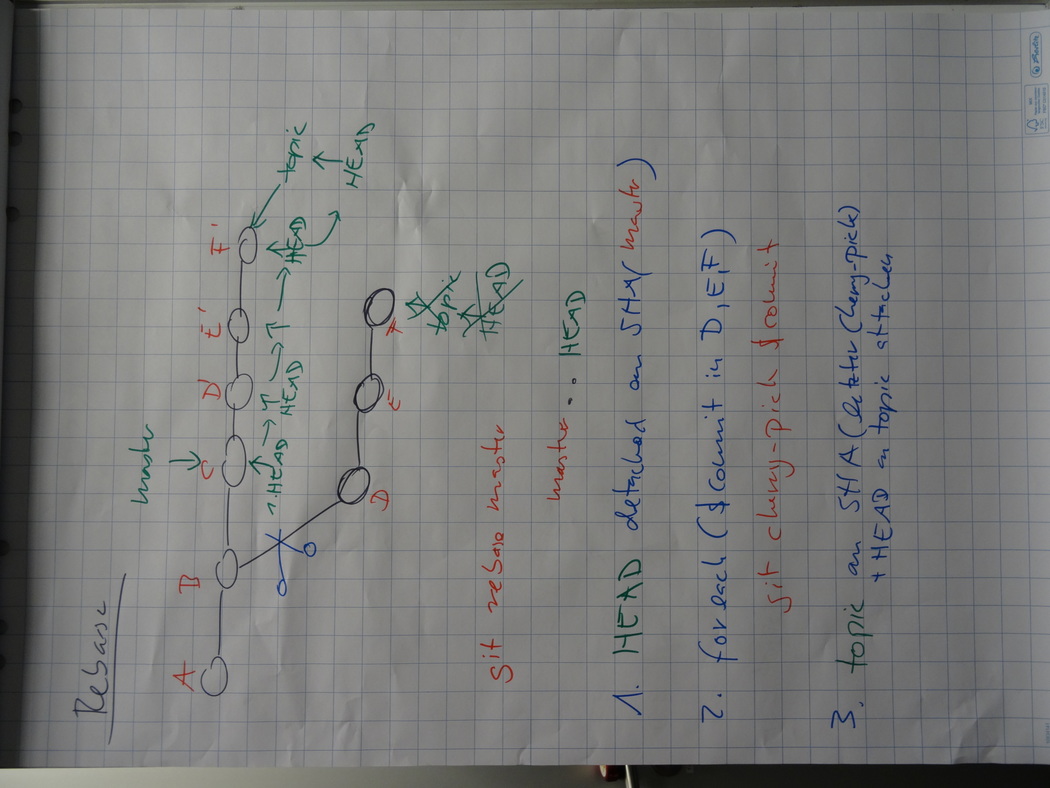 Rebase
master
A B C D' E' F'
1. HEAD HEAD HEAD topic
HEAD
D E F
topic
HEAD
git rebase master
master .. HEAD
1. HEAD detached an SHA(master)
2. foreach ($commit in D, E, F)
git cherry-pick $commit
3. topic an SHA(letzter Cherry-pick)
+ HEAD an topic attachen